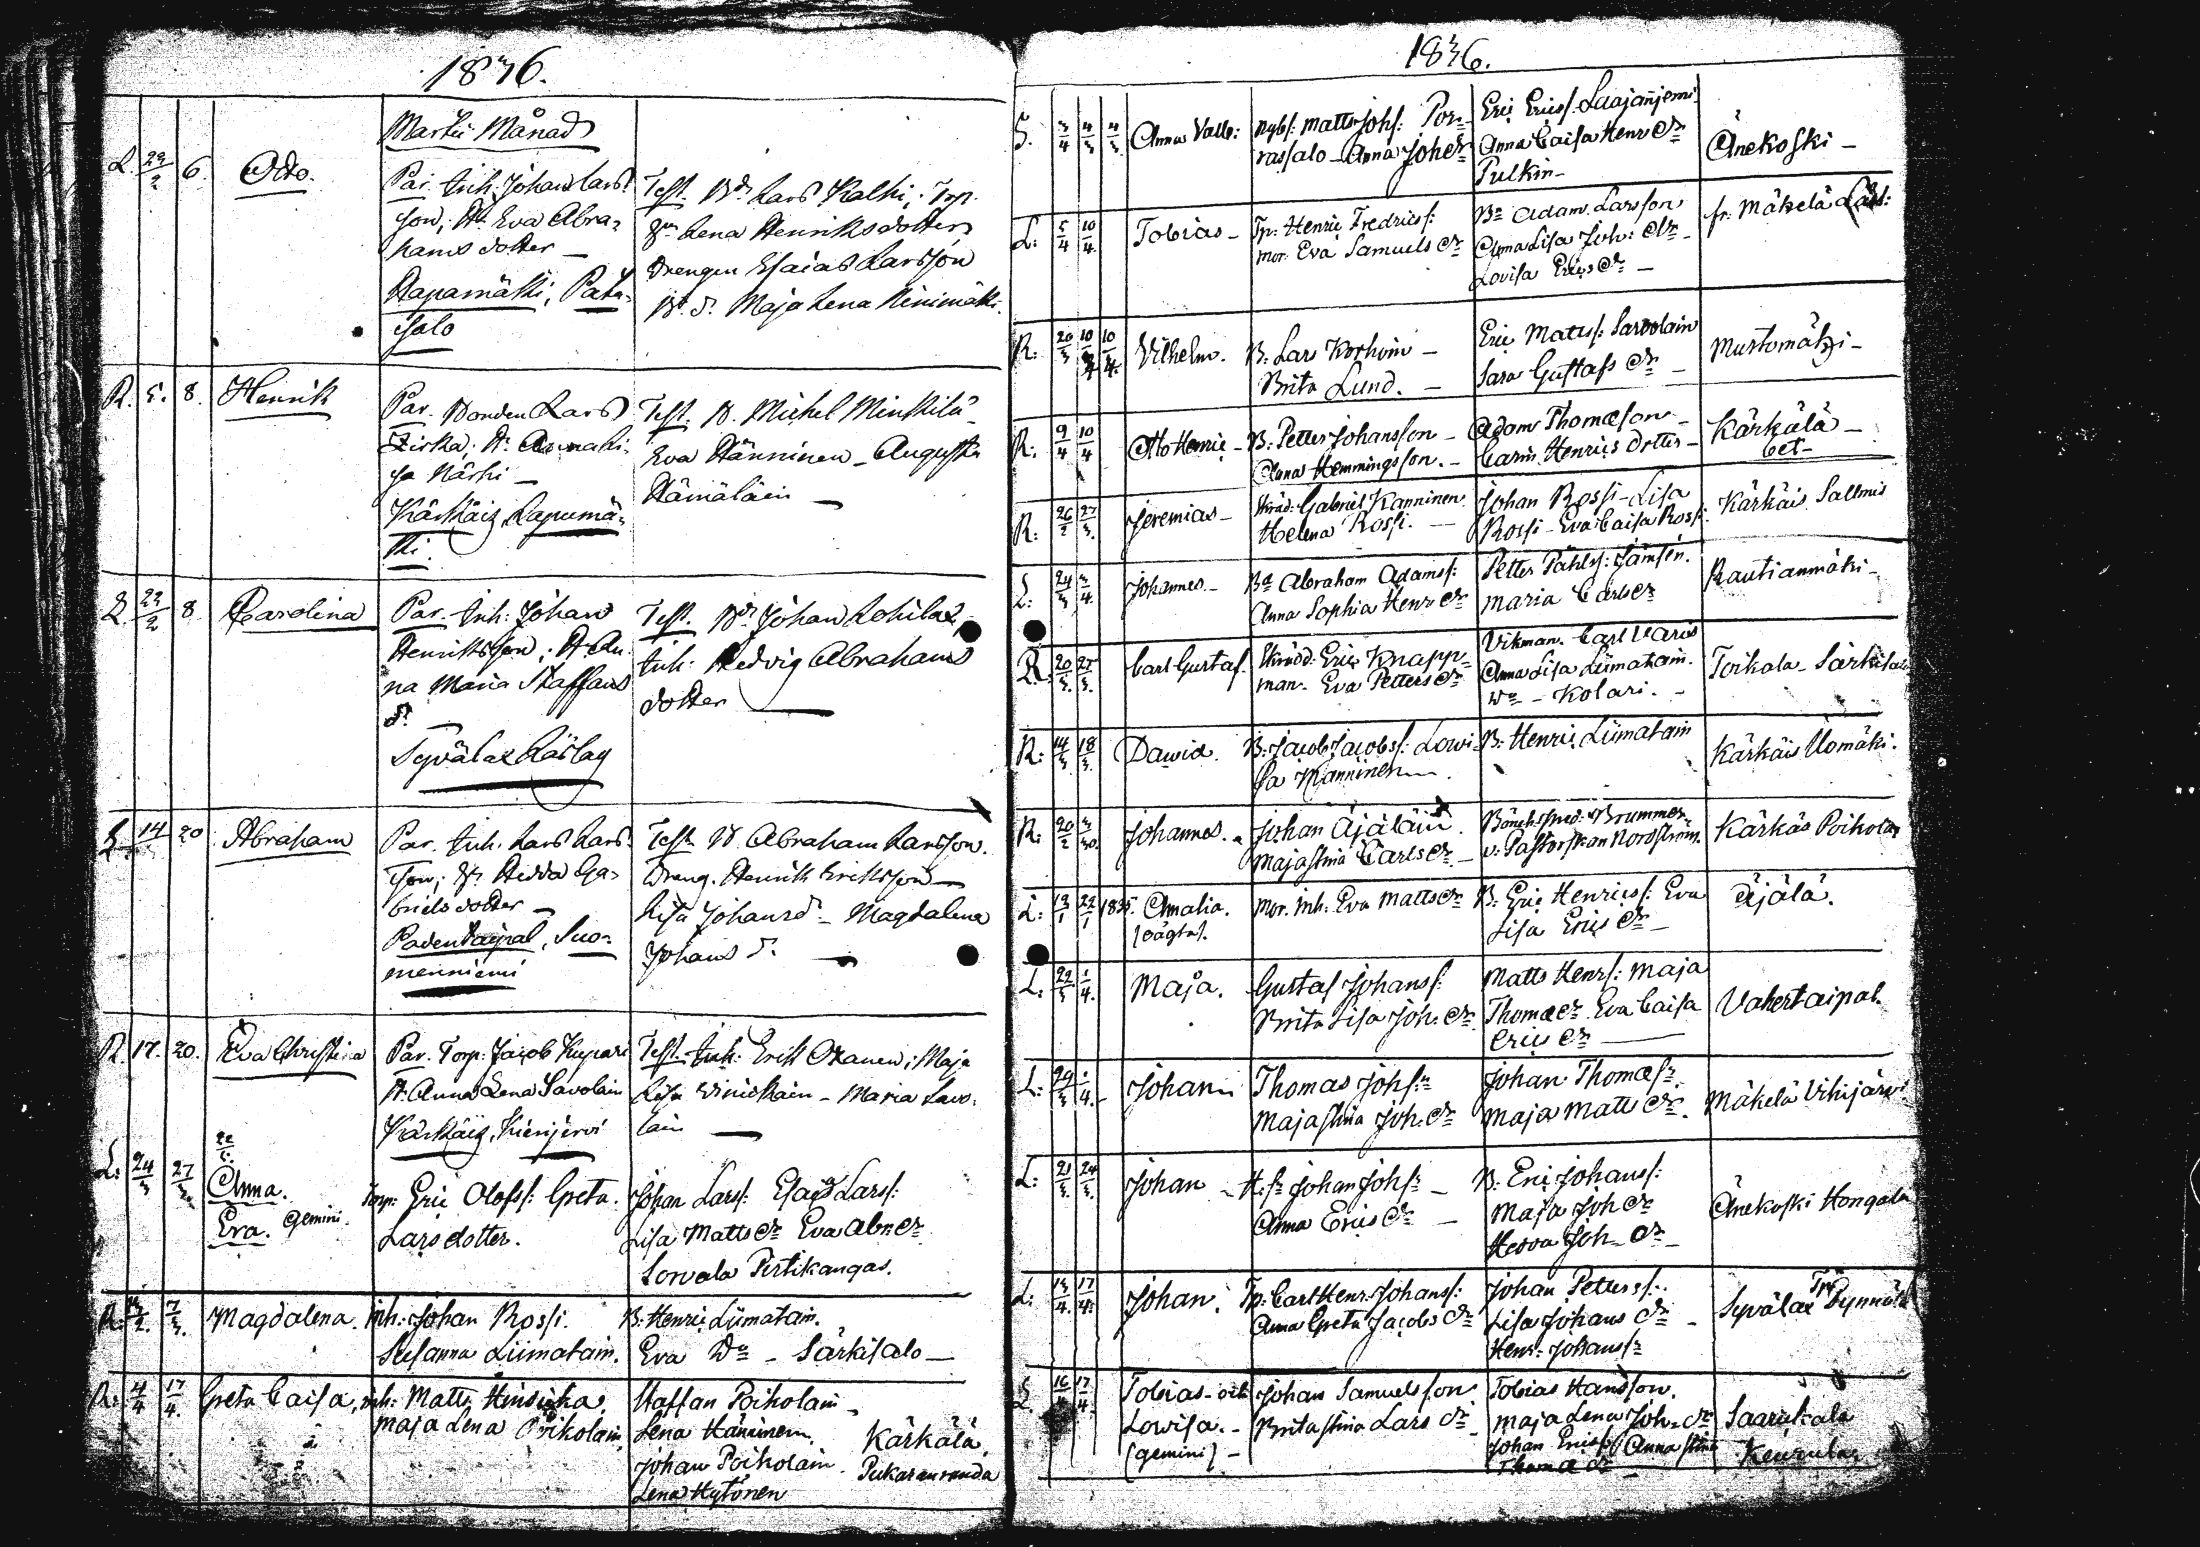 1836.
Martii Månad
L. 29/2 6. Otto.
Par. Inh: Johan Lars
son; H. Eva Abra-
hams dotter —
Rapamäki, Pata-
salo
Test. Bd. Lars Kalhi; Torp.
Lena Henriksdotter
Drengen Esaias Larsson
Maja Lena Niinimäki.
R. 5. 8. Henrik
Par. Bonden Lars
Zirka; H. Annali-
sa Närhi —
Kärkäiz, Lapumä-
ki.
Test. B. Michel Minkilä
Eva Hänninen – Augusta
Hämäläin —
L. 29/2 8. Carolina
Par. Inh: Johan
Henriksson; H. An-
na Maria Staffans
d. —
Syvälax Kärlax
Test. Johan Lohilax,
Inh: Hedvig Abrahams
dotter —
L. 14 20 Abraham
Par. Inh. Lars Lars-
son; H. Hedda Ga-
briels dotter —
Padentaipal, Suo-
menniemi
Test. B. Abraham Larsson.
Dreng. Henrik Eriksson —
Lisa Johansd. – Magdalena
Johans d. —
R. 17. 20. Eva Christina
Par. Torp: Jacob Kupari
H. Anna Lena Savolain
Kärkäiz, Kierijervi
Test. Inh: Erik Oxanen; Maja
Lisa Winickain – Maria Savo-
lain —
L: 24/3 27/3 Anna.
Eva. Gemini.
Torp: Eric Olofss: Greta
Lars dotter.
Johan Larss: Esaias Larss:
Lisa Matts dr Eva Abr. dr
Sorvala Pirtikangas.
R: 7/3. Magdalena.
inh: Johan Rossi.
Susanna Liimatain.
B: Henric Liimatain.
Eva Dn – Särkisalo —
R: 4/4 17/4. Greta Caisa,
inh: Matts Hinsicka.
Maja Lena Poikolain,
Staffan Poikolain –
Lena Hänninen.
Johan Poikolain.
Lena Hytönen
Kärkälä.
Pukaranranda
1836.
S. 3/4 4/3 4/3 Anna Valb:
Nybs: Matts Johs: Por-
rassalo – Anna Joh. dr
Eric Ericss. Laajanjemi
Anna Caisa Henr. dr
Pulkin –
Änekoski –
L: 5/4 10/4. Tobias –
Tp: Henric Fredricss:
mor. Eva Samuels dr
Bn Adam Larsson
Anna Lisa Joh: dr –
Lovisa Erics dr —
fr. Mäkelä
R: 20/3 10/4 10/4. Vilhelm.
B: Lars Korhoin –
Brita Lund. –
Eric Matts: Savolain
Sara Gustafs dr –
Mustomäki –
R: 9/4 10/4 Otto Henric –
B: Petter Johansson –
Anna Hemmingsson. –
Adam Thomæson –
Carin Henrics dotter –
Kärkälä –
bet –
R: 26/2 27/3. Jeremias –
Skräd: Gabriel Kanninen.
Helena Rossi. —
Johan Rossi – Lisa
Rossi – Eva Caisa Rossi.
Kärkäis Sallmis
L: 24/3 3/4. Johannes –
Bd Abraham Adamss:
Anna Sophia Henr dr
Petter Påhlss: Jämsén.
Maria Carls dr
Rautianmäki –
R. 20/3. 27/3. Carl Gustaf.
Skrädd: Eric Knapp-
man. Eva Petters dr
Vikman. Carl Varis
Anna Lisa Liimatain.
Dn – Kolari. –
Toikala – Särkisalo
R: 14/3. 18/3. Dawid.
B: Jacob Jacobss: Lowi-
sa Manninen.
B: Henric Liimatain
Kärkäis Uomäki.
R: 20/2 Johannes.
Johan Äjäläin.
Maja Stina Carls dr –
Brummer
v. Pastorskan Nordström.
Kärkäs Poikola
L: 13/1 22/1 1835. Amalia.
(oägta).
Mor. Inh: Eva Matts dr
B: Eric Henricss: Eva
Lisa Erics dr –
Äjälä.
L: 29/3 1/4. Maja.
Gustaf Johanss:
Brita Lisa Joh. dr
Matts Henrs: Maja
Thomæ dr Eva Caisa
Erics dr —
Vahertaipal.
L: 29/3 1/4. Johan
Thomas Johs:n
Maja Stina Joh. dr
Johan Thomæ sn
Maja Matts dr.
Mäkelä Vihijärvi
L: 21/3. 24/3. Johan
H. sn Johan Johsn –
Anna Erics dr –
B: Eric Johanss:
Maja Joh dr
Hedva Joh – dr –
Änekoski Hongala
L: 13/4. 17/4: Johan.
Tp: Carl Henr: Johanss:
Anna Greta Jacobs dr
Johan Petterss:
Lisa Johans dr –
Henr: Johanss:
Syvälax
L. 16/4 17/4. Tobias – och
Lowisa. –
(gemini) –
Johan Samuelsson
Brita Stina Lars dr
Tobias Hansson.
Maja Lena Joh: dr
Johan Ericss: Anna Stina
Thomæ dr
Saarikala
Keurula